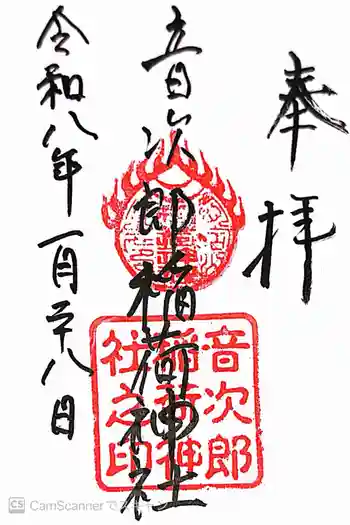 奉拝
音次郎稲荷神社
令和八年一月廿八日
音次郎
稲荷神
社之印
CS CamScanner で